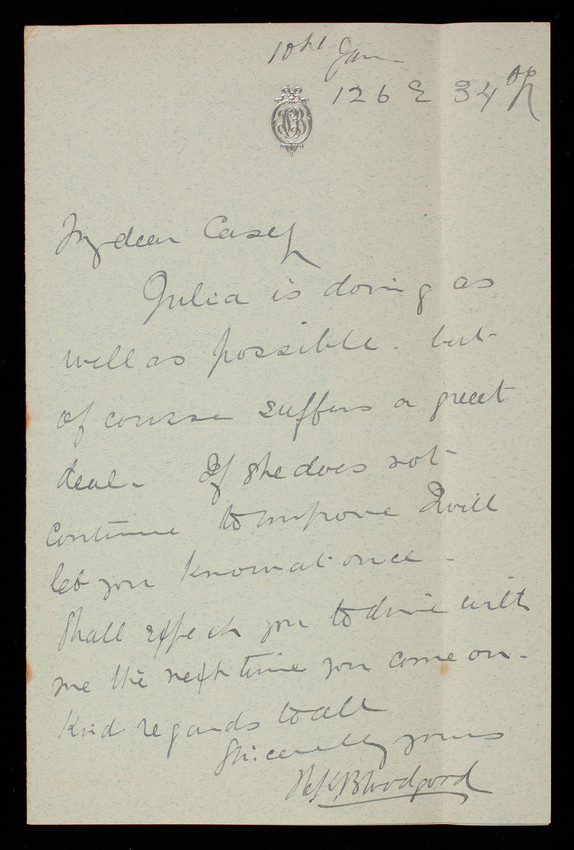 10th Jan
126 E 34th
My dear Casey
Julia is doing as
well as possible - but
of course suffers a great
deal. If she does not
continue to improve I will
let you know at once -
Shall expect you to dine with
me the next time you come on -
Kind regards to all
Sincerely yours
Bloodgood